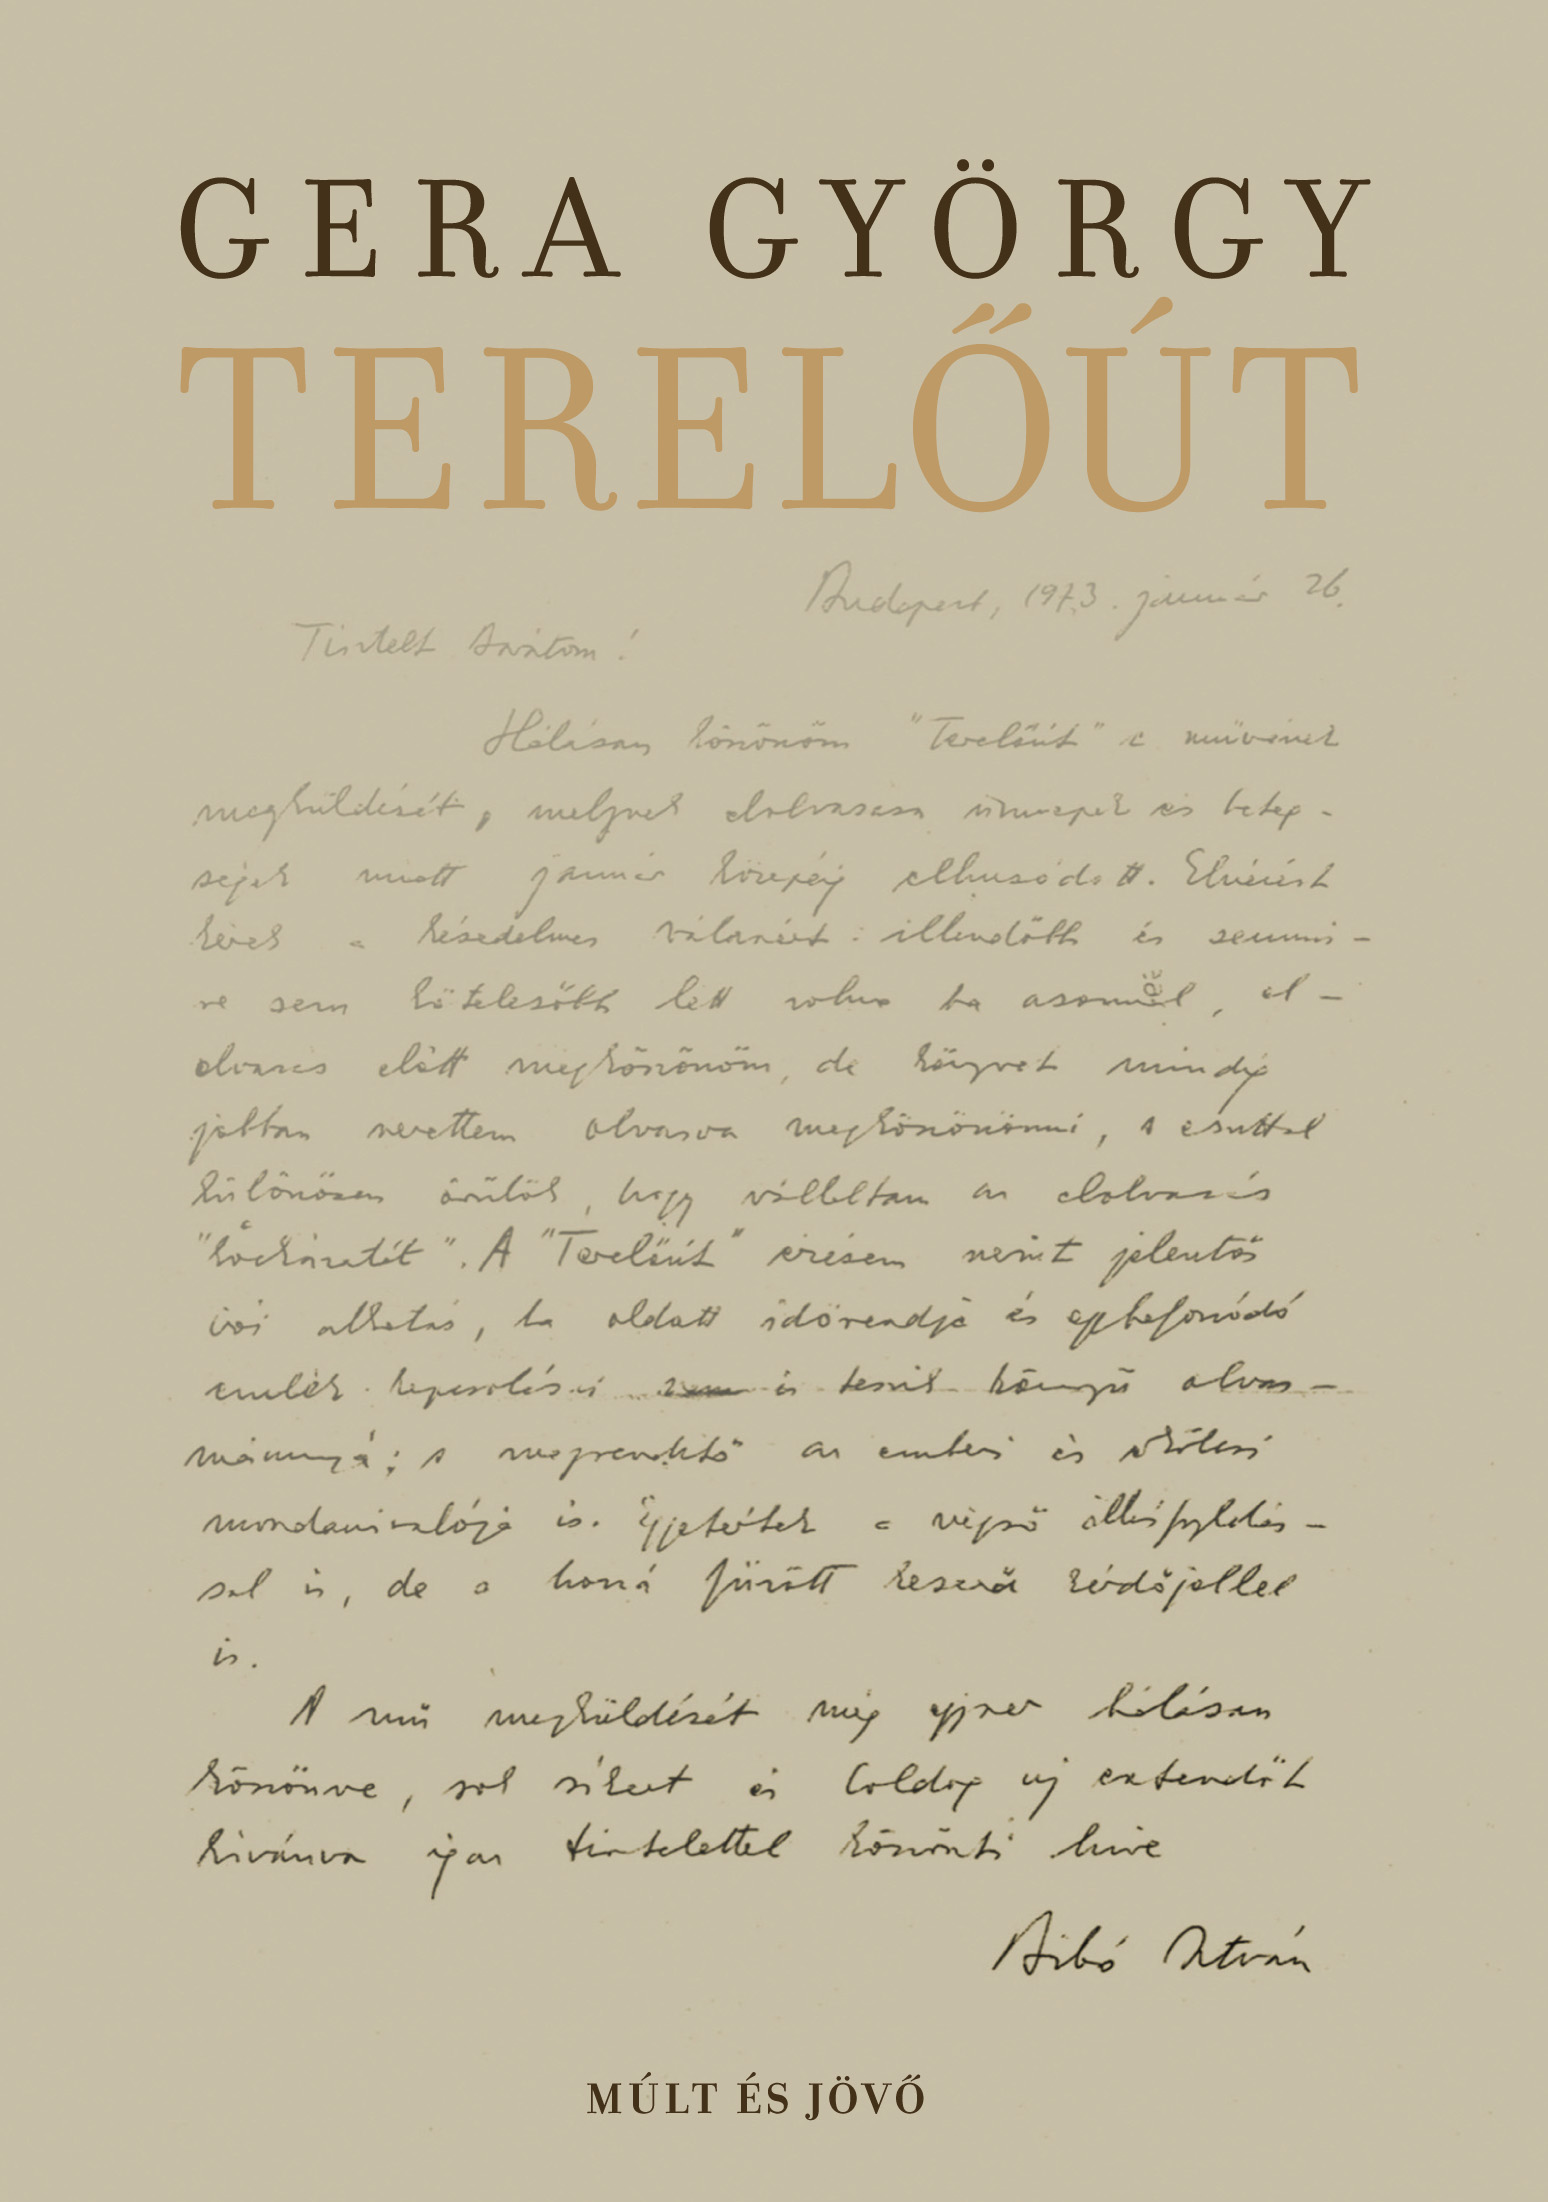 GERA GYÖRGY
TERELŐÚT
Budapest, 1973. január 26.
Tisztelt Barátom!
Hálásan köszönöm "Terelőút" c művének
megküldését, melynek elolvasása ünnepek és beteg-
ségek miatt január közepéig elhúzódott. Elnézést
kérek a késedelmes válaszért: illendőbb és semmi-
re sem kötelesőbb lett volna ha azonnal, el-
olvasás előtt megköszönöm, de könyvet mindig
jobban szerettem olvasva megköszönni, s ezúttal
különösen örülök, hogy vállaltam az elolvasás
"kockázatát". A "Terelőút" érzésem szerint jelentős
írói alkotás, ha oldott időrendje és egybefonódó
emlék kapcsolásai is teszik könnyű olvas-
mánnyá; s megrendítő az emberi és erkölcsi
mondanivalója is. Egyetértek a végső állásfoglalás-
sal is, de a hozzá fűzött keserű kérdőjellel
is.
A mű megküldését még egyszer hálásan
köszönve, sok sikert és boldog új esztendőt
kívánva igaz tisztelettel köszönti híve
Bibó István
MÚLT ÉS JÖVŐ